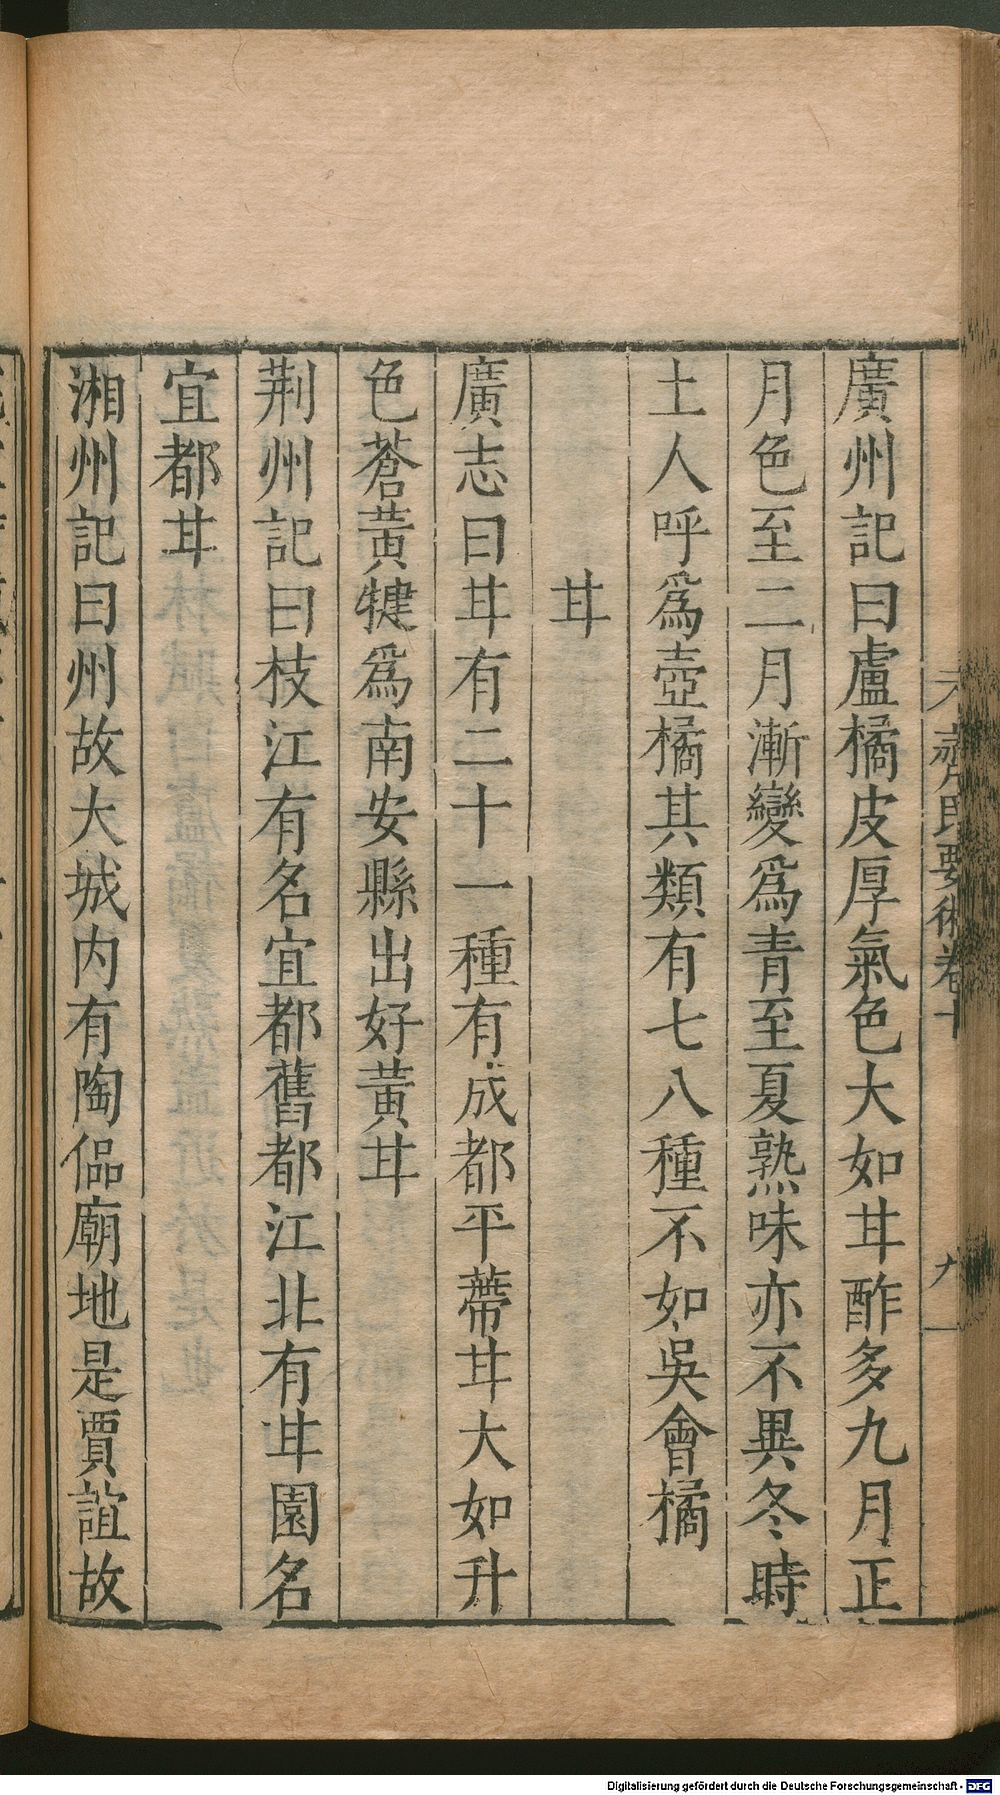 齊民要術卷十
九
廣州記曰盧橘皮厚氣色大如甘酢多九月正
月色至二月漸變爲青至夏熟味亦不異冬時
土人呼爲壺橘其類有七八種不如吳會橘
甘
廣志曰甘有二十一種有成都平蔕甘大如升
色蒼黄犍爲南安縣出好黄甘
荆州記曰枝江有名宜都舊都江北有甘園名
宜都甘
湘州記曰州故大城内有陶侃廟地是賈誼故
Digitalisierung gefördert durch die Deutsche Forschungsgemeinschaft - DFG